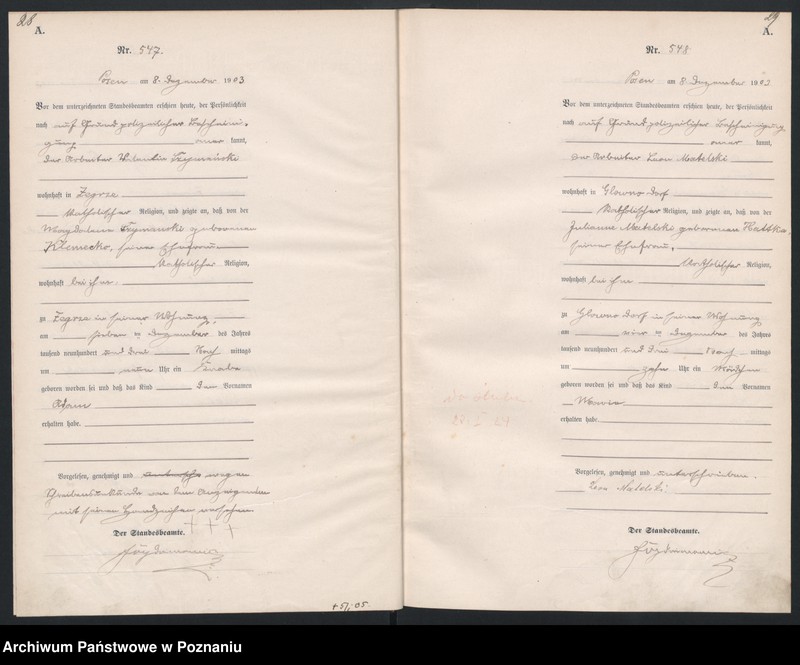 28
A.
Nr. 547.
Posen am 8. Dezember 1903
Vor dem unterzeichneten Standesbeamten erschien heute, der Persönlichkeit
nach auf Grund polizeilicher Bescheini-
gung kannt,
der Arbeiter Valentin Szymański
wohnhaft in Zegrze
katholischer Religion, und zeigte an, daß von der
Magdalena Szymanski geborenen
Klemecka, seiner Ehefrau
katholischer Religion,
wohnhaft bei ihm
zu Zegrze in seiner Wohnung,
am sieben ten Dezember des Jahres
tausend neunhundert und drei Nach mittags
um neun Uhr ein Knabe
geboren worden sei und daß das Kind den Vornamen
Adam
erhalten habe.
Vorgelesen, genehmigt und wegen
Schreibensunkunde von dem Anzeigenden
mit seinem Handzeichen versehen.
+ + +
Der Standesbeamte.
+ 5/1. 05.
29
A.
Nr. 548
Posen am 8. Dezember 1903
Vor dem unterzeichneten Standesbeamten erschien heute, der Persönlichkeit
nach auf Grund polizeilicher Bescheinigung
kannt,
der Arbeiter Leon Matelski
wohnhaft in Glowno Dorf
katholischer Religion, und zeigte an, daß von der
Julianna Matelski geborenen
seiner Ehefrau,
katholischer Religion,
wohnhaft bei ihm
zu Glowno Dorf in seiner Wohnung
am vier ten Dezember des Jahres
tausend neunhundert und drei Nach mittags
um zehn Uhr ein Mädchen
geboren worden sei und daß das Kind den Vornamen
Maria
erhalten habe.
Vorgelesen, genehmigt und unterschrieben.
Leon Matelski
Der Standesbeamte.
Archiwum Państwowe w Poznaniu